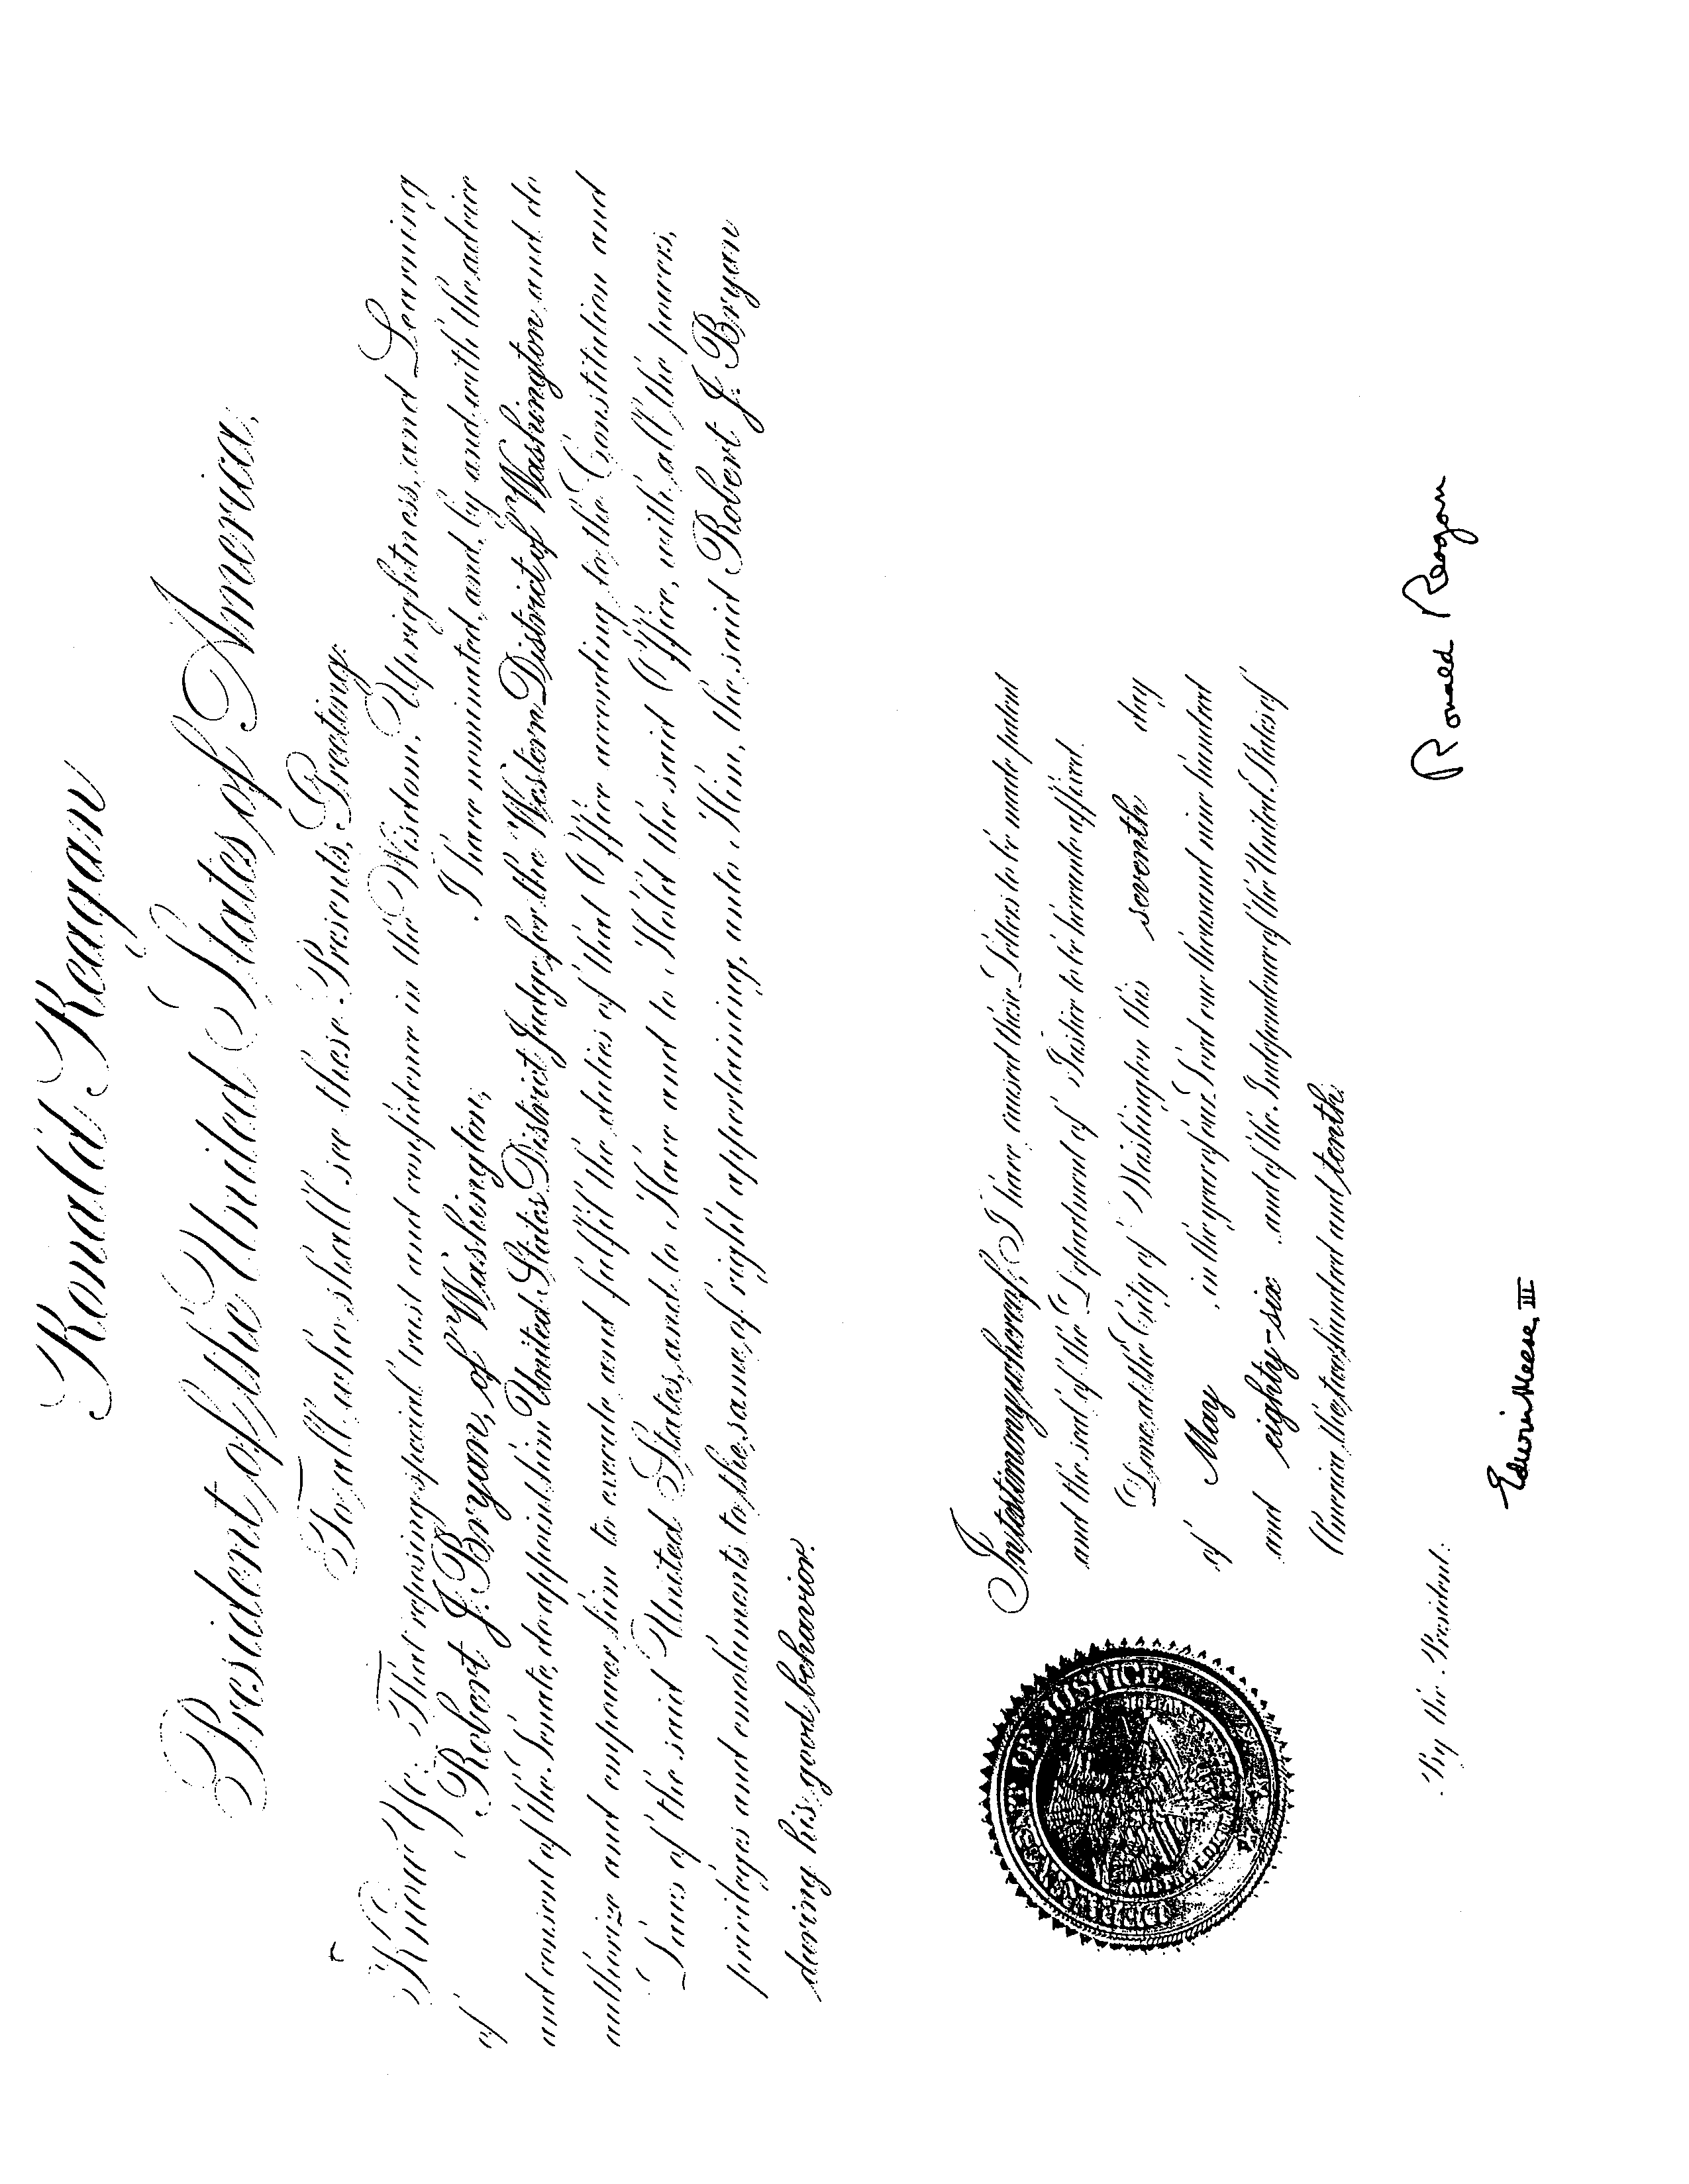 Ronald Reagan
President of the United States of America,
To all who shall see these Presents, Greeting:
Know Ye; That reposing special trust and confidence in the Wisdom, Uprightness, and Learning
of Robert J. Bryan, of Washington, I have nominated, and, by and with the advice
and consent of the Senate, do appoint him United States District Judge for the Western District of Washington, and do
authorize and empower him to execute and fulfil the duties of that Office according to the Constitution and
Laws of the said United States, and to Have and to Hold the said Office, with all the powers,
privileges and emoluments to the same of right appertaining, unto Him, the said Robert J. Bryan
during his good behavior.
In testimony whereof, I have caused these Letters to be made patent
and the seal of the Department of Justice to be hereunto affixed.
Done at the City of Washington this seventh day
of May, in the year of our Lord one thousand nine hundred
and eighty-six and of the Independence of the United States of
America the two hundred and tenth.
DEPARTMENT OF JUSTICE
Ronald Reagan
By the President:
Edwin Meese III